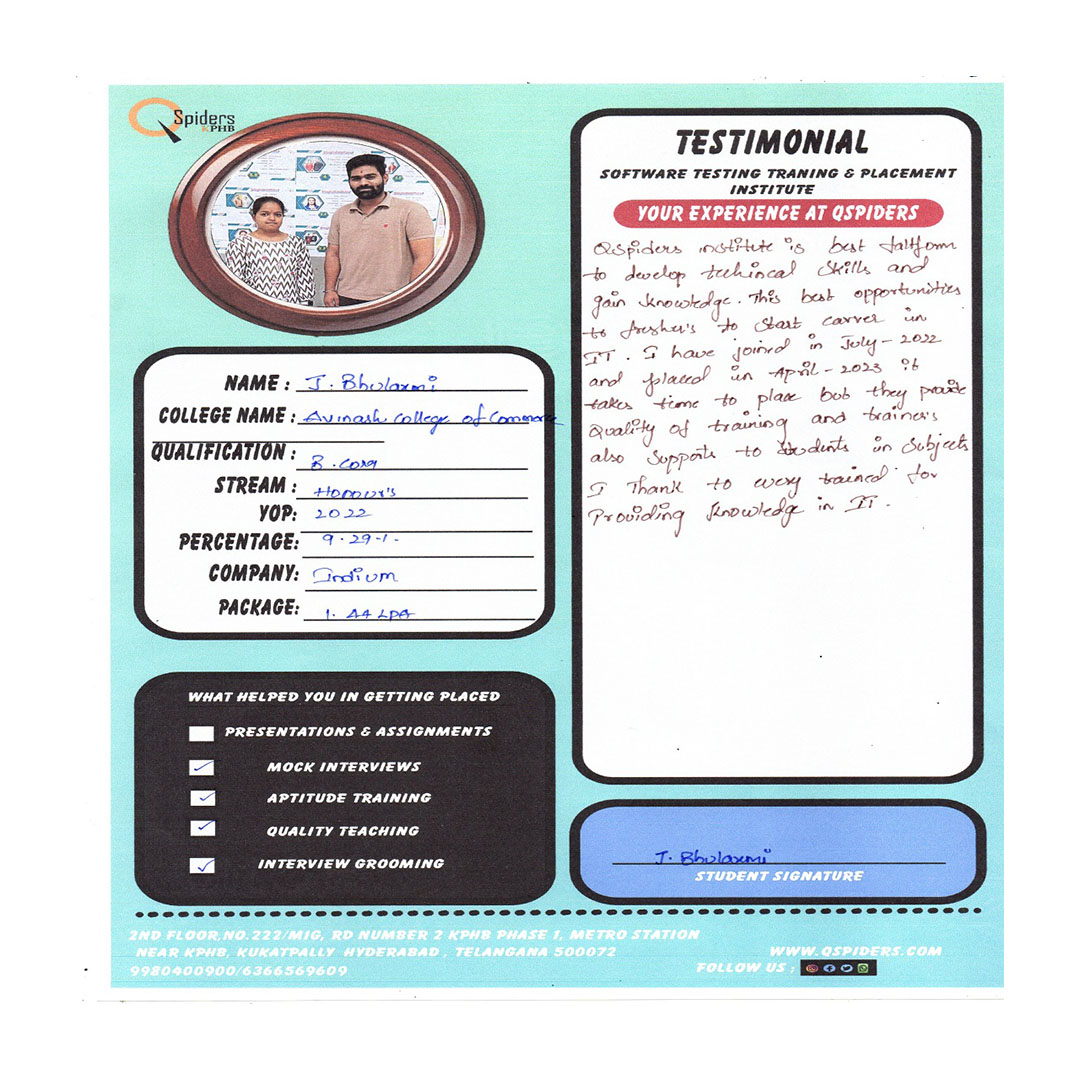 Q Spiders
KPHB
NAME : J. Bhulaxmi
COLLEGE NAME : Avinash College of Commerce
QUALIFICATION : B.com
STREAM : Honour's
YOP: 2022
PERCENTAGE: 9.29-1-
COMPANY: Indium
PACKAGE: 1.44 LPA
WHAT HELPED YOU IN GETTING PLACED
PRESENTATIONS & ASSIGNMENTS
MOCK INTERVIEWS
APTITUDE TRAINING
QUALITY TEACHING
INTERVIEW GROOMING
TESTIMONIAL
SOFTWARE TESTING TRANING & PLACEMENT
INSTITUTE
YOUR EXPERIENCE AT QSPIDERS
Qspiders institute is best
to develop techincal skills and
gain knowledge. This best opportunities
to fresher's to start carrer in
IT. I have joined in July - 2022
and placed in April - 2023 it
takes time to place but they provide
Quality of training and trainers
also Supports to students in subjects
I Thank to every trained for
Providing knowledge in IT.
J. Bhulaxmi
STUDENT SIGNATURE
2ND FLOOR,NO.222/MIG, RD NUMBER 2 KPHB PHASE 1, METRO STATION
NEAR KPHB, KUKATPALLY HYDERABAD , TELANGANA 500072
9980400900/6366569609
WWW.QSPIDERS.COM
FOLLOW US :